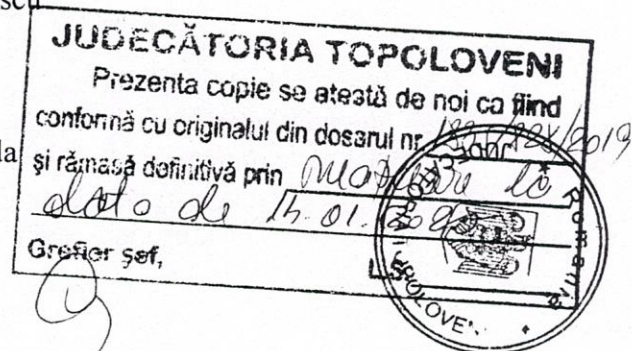 escu
la
JUDECĂTORIA TOPOLOVENI
Prezenta copie se atestă de noi ca fiind
conformă cu originalul din dosarul nr. /2019
și rămasă definitivă prin la
data de 14.01.
Grefier șef,
L.S.